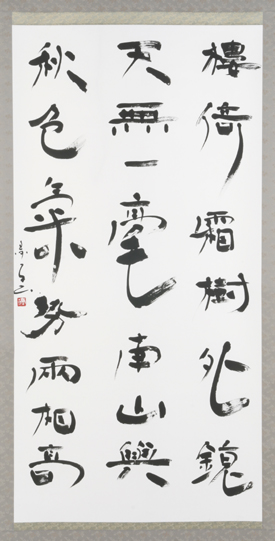 樓倚霜樹外鏡
天無一毫南山與
秋色氣勢兩相高